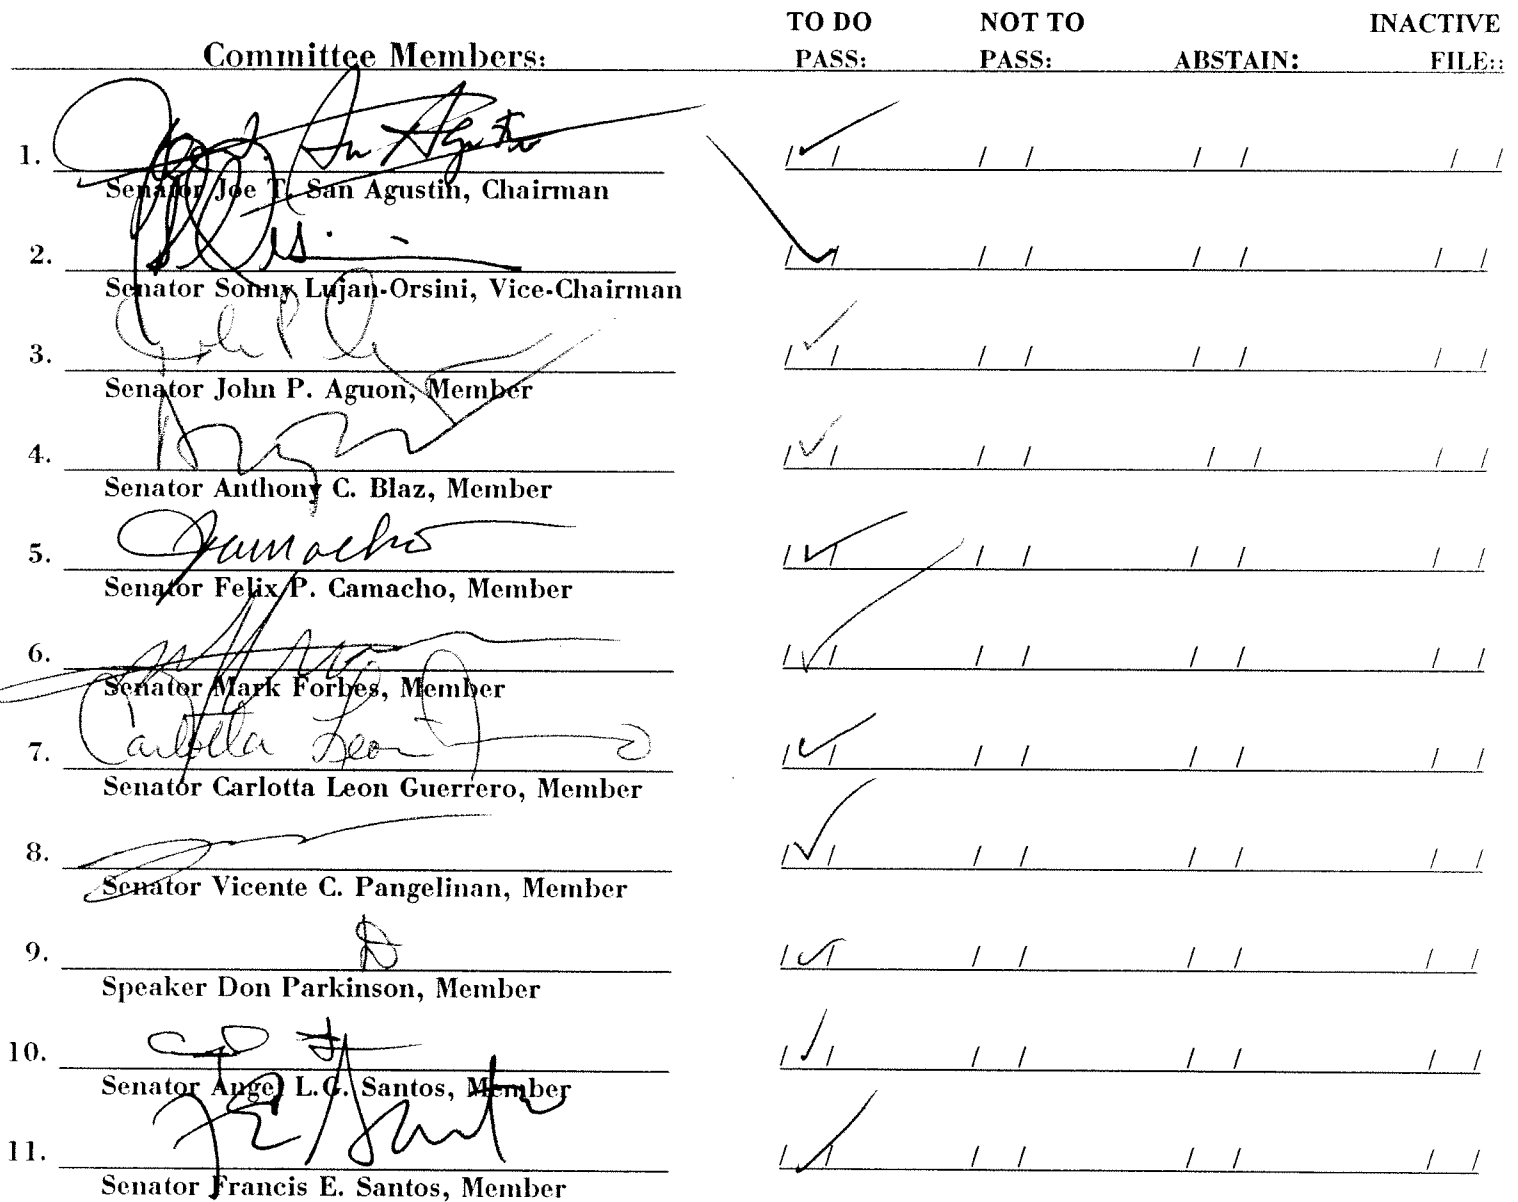 TO DO NOT TO INACTIVE
Committee Members: PASS: PASS: ABSTAIN: FILE::
1. Joe T. San Agustin / ✓ / / / / / / /
Senator Joe T. San Agustin, Chairman
2. / ✓ / / / / / / /
Senator Sonny Lujan-Orsini, Vice-Chairman
3. / ✓ / / / / / / /
Senator John P. Aguon, Member
4. / ✓ / / / / / / /
Senator Anthony C. Blaz, Member
5. Camacho / ✓ / / / / / / /
Senator Felix P. Camacho, Member
6. / ✓ / / / / / / /
Senator Mark Forbes, Member
7. Carlotta Leon / ✓ / / / / / / /
Senator Carlotta Leon Guerrero, Member
8. / ✓ / / / / / / /
Senator Vicente C. Pangelinan, Member
9. / ✓ / / / / / / /
Speaker Don Parkinson, Member
10. / ✓ / / / / / / /
Senator Angel L.G. Santos, Member
11. / ✓ / / / / / / /
Senator Francis E. Santos, Member